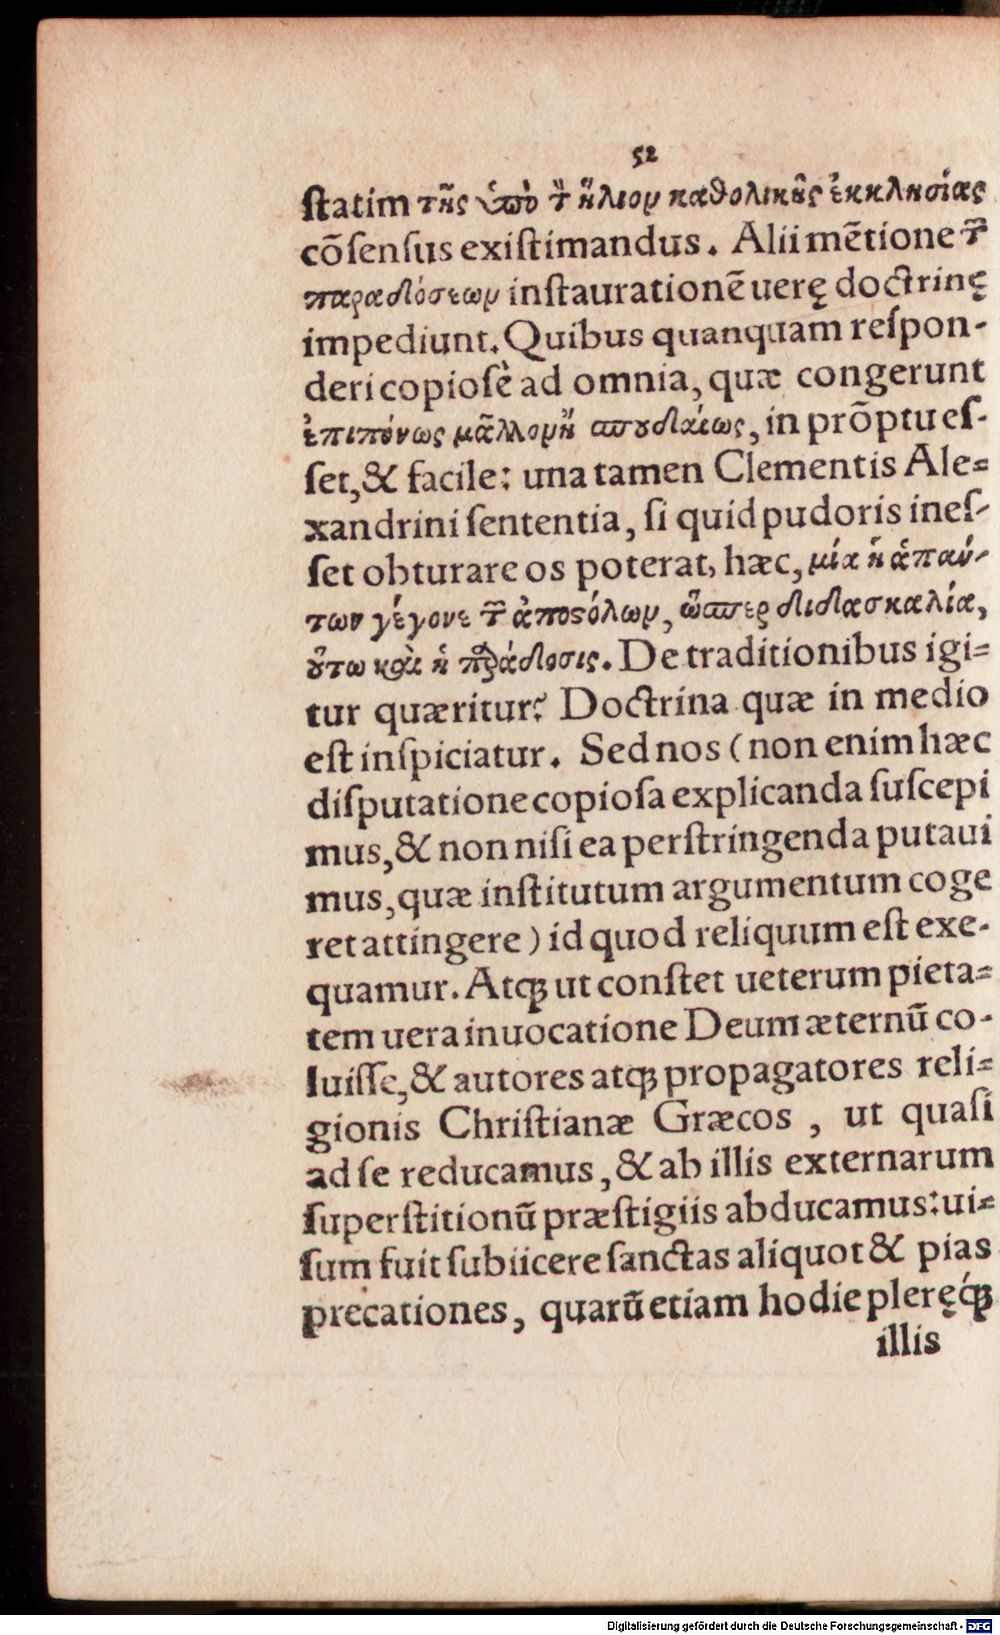 52
ſtatim τῆς ὑπὸ τ̀ ἥλιον καθολικῆς ἐκκλησίας
cõſenſus exiſtimandus. Alii mẽtione τ͂
παραδόσεων inſtaurationẽ uerę doctrinę
impediunt. Quibus quanquam reſpon-
deri copioſè ad omnia, quæ congerunt
ἐπιπόνως μᾶλλον ἢ σπουδαίως, in prõptu eſ-
ſet, & facile: una tamen Clementis Ale=
xandrini ſententia, ſi quid pudoris ineſ-
ſet obturare os poterat, hæc, μία ἡ ἁπάν-
των γέγονε τ͂ ἀποστόλων, ὥσπερ διδασκαλία,
οὕτω καὶ ἡ παράδοσις. De traditionibus igi=
tur quæritur? Doctrina quæ in medio
eſt inſpiciatur. Sed nos (non enim hæc
diſputatione copioſa explicanda ſuſcepi
mus, & non niſi ea perſtringenda putaui
mus, quæ inſtitutum argumentum coge
ret attingere) id quod reliquum eſt exe-
quamur. Atqꝫ ut conſtet ueterum pieta=
tem uera inuocatione Deum æternũ co-
luiſſe, & autores atqꝫ propagatores reli=
gionis Chriſtianæ Græcos, ut quaſi
ad ſe reducamus, & ab illis externarum
ſuperſtitionũ præſtigiis abducamus: ui=
ſum fuit ſubiicere ſanctas aliquot & pias
precationes, quarũ etiam hodie pleręqꝫ
illis
Digitalisierung gefördert durch die Deutsche Forschungsgemeinschaft - DFG